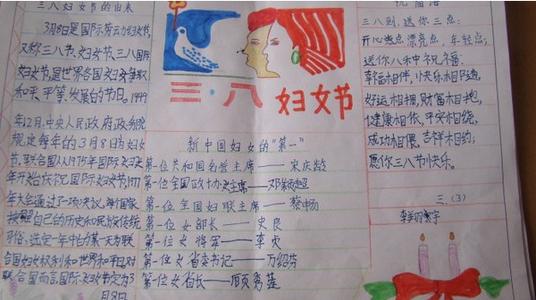 三八妇女节的由来
3月8日是国际劳动妇女节,
又称三八节、妇女节、三八国际
妇女节,是世界各国妇女争取
和平、平等、发展的节日。1949
年12月,中央人民政府政务院
规定每年的3月8日为妇女
节,联合国从1975年国际妇女
年开始庆祝国际妇女节,1977
年大会通过了一项决议,每个国家
按照自己的历史和民族传统
习俗,选定一年中的某一天为联
合国妇女权利和世界和平日。对
联合国而言国际妇女节定为3
月8日
三·八 妇女节
新中国妇女的“第一”
第一位共和国名誉主席——宋庆龄
第一位全国政协女主席——邓颖超
第一位全国妇联主席——蔡畅
第一位女部长——史良
第一位女将军——李贞
第一位女省委书记——万绍芬
第一位女省长——顾秀莲
祝福语
三八到,送你三点:
开心点漂亮点,年轻点;
送你八未中祝福:
幸福相伴,小快乐相随,
好运相拥,财富相抱,
健康相依,平安相绕,
成功相偎,吉祥相约;
愿你三八节快乐。
三(3)